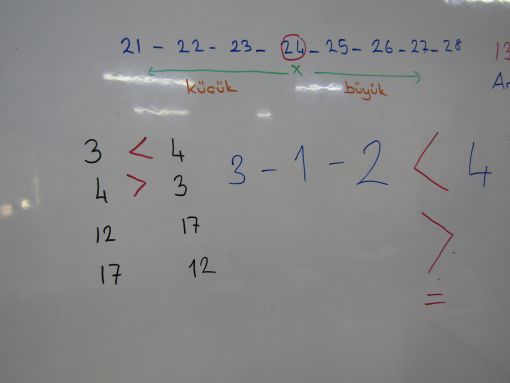 21 - 22 - 23 - 24 - 25 - 26 - 27 - 28
x
küçük büyük
13
3 < 4
4 > 3
12 17
17 12
3 - 1 - 2 < 4
>
=